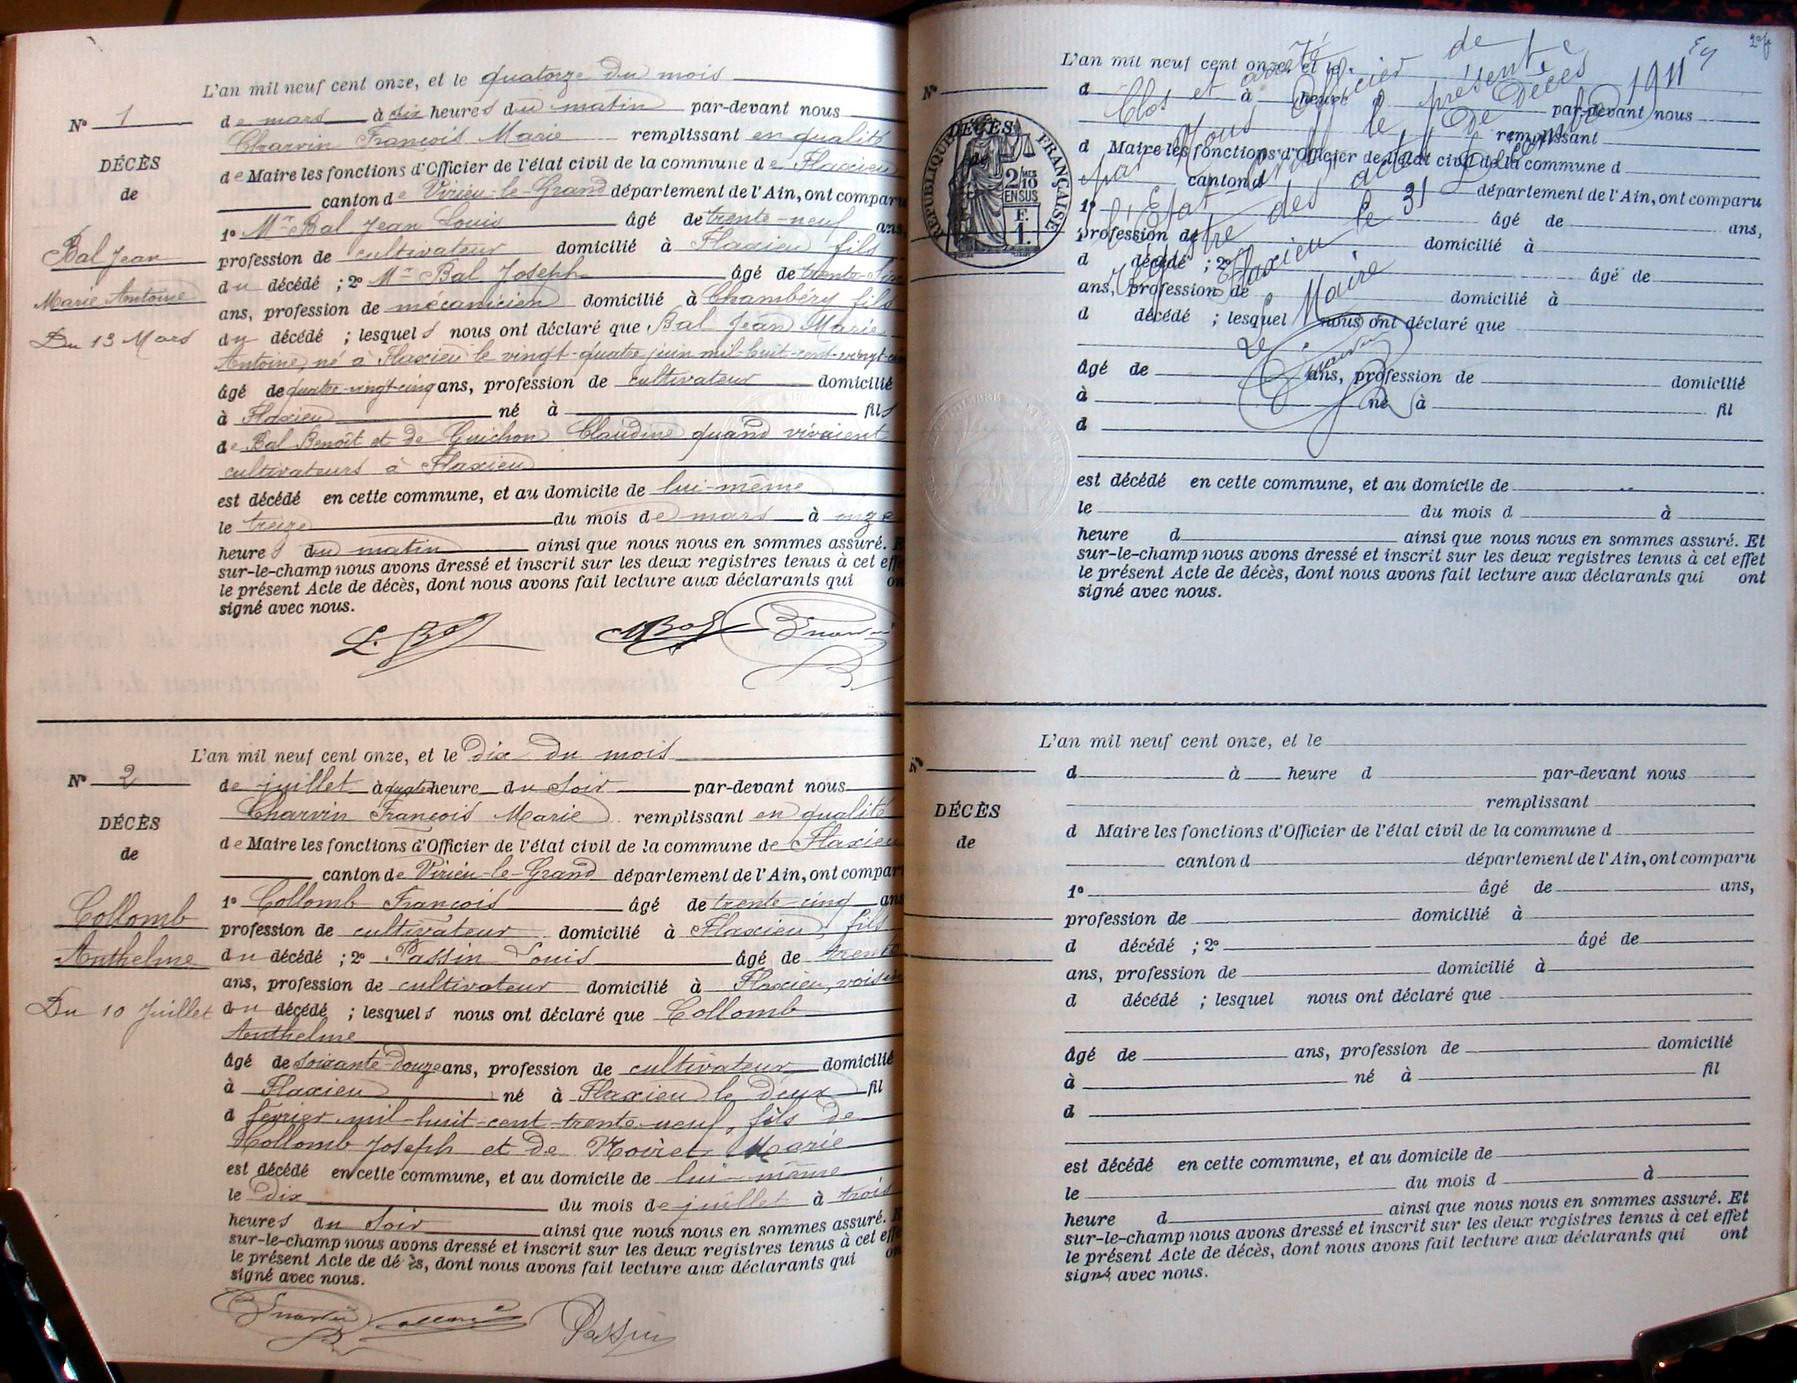 L'an mil neuf cent onze, et le quatorze du mois
N° 1
de mars à dix heures du matin par-devant nous
Charvin François Marie remplissant en qualité
DÉCÈS
de Maire les fonctions d'Officier de l'état civil de la commune de Flaxieu
de
canton de Virieu-le-Grand département de l'Ain, ont comparu
1° Mr Bal Jean Louis âgé de trente-neuf ans,
Bal Jean
profession de cultivateur domicilié à Flaxieu fils
du décédé ; 2° Mr Bal Joseph âgé de trente-six
Marie Antoine
ans, profession de mécanicien domicilié à Chambéry fils
Du 13 Mars
du décédé ; lesquels nous ont déclaré que Bal Jean Marie
Antoine, né à Flaxieu le vingt-quatre juin mil-huit-cent-vingt-
âgé de quatre-vingt-cinq ans, profession de cultivateur domicilié
à Flaxieu né à fils
de Bal Benoît et de Guichon Claudine quand vivaient
cultivateurs à Flaxieu
est décédé en cette commune, et au domicile de lui-même
le treize du mois de mars à onze
heures du matin ainsi que nous nous en sommes assuré.
sur-le-champ nous avons dressé et inscrit sur les deux registres tenus à cet eff
le présent Acte de décès, dont nous avons fait lecture aux déclarants qui on
signé avec nous.
L. Bal
L'an mil neuf cent onze, et le dix du mois
N° 2
de juillet à quatre heure du soir par-devant nous
Charvin François Marie remplissant en qualité
DÉCÈS
de Maire les fonctions d'Officier de l'état civil de la commune de Flaxieu
de
canton de Virieu-le-Grand département de l'Ain, ont compar
1° Collomb François âgé de trente-cinq ans
Collomb
profession de cultivateur domicilié à Flaxieu, fils
Anthelme
du décédé ; 2° Passin Louis âgé de trente
ans, profession de cultivateur domicilié à Flaxieu, voisin
Du 10 Juillet
du décédé ; lesquels nous ont déclaré que Collomb
Anthelme
âgé de soixante-douze ans, profession de cultivateur domicilié
à Flaxieu né à Flaxieu le deux fil
d février mil-huit-cent-trente-neuf, fils de
Collomb Joseph et de Moiret Marie
est décédé en cette commune, et au domicile de lui-même
le dix du mois de juillet à trois
heures du soir ainsi que nous nous en sommes assuré.
sur-le-champ nous avons dressé et inscrit sur les deux registres tenus à cet eff
le présent Acte de décès, dont nous avons fait lecture aux déclarants qui on
signé avec nous.
Passin
L'an mil neuf cent onze, et le
N°
d à heure d par-devant nous
remplissant
d Maire les fonctions d'Officier de l'état civil de la commune d
canton d département de l'Ain, ont comparu
1° âgé de ans,
profession de domicilié à
d décédé ; 2° âgé de
ans, profession de domicilié à
d décédé ; lesquel nous ont déclaré que
âgé de ans, profession de domicilié
à né à fil
d
est décédé en cette commune, et au domicile de
le du mois d à
heure d ainsi que nous nous en sommes assuré. Et
sur-le-champ nous avons dressé et inscrit sur les deux registres tenus à cet effet
le présent Acte de décès, dont nous avons fait lecture aux déclarants qui ont
signé avec nous.
Clos et arrêté
par nous officier de
l'Etat civil le présent
registre des actes de Décès
Flaxieu le 31 Décembre 1911
Le Maire
DÉCÈS
RÉPUBLIQUE FRANÇAISE
2/10
EN SUS
L'an mil neuf cent onze, et le
N°
d à heure d par-devant nous
remplissant
DÉCÈS
d Maire les fonctions d'Officier de l'état civil de la commune d
de
canton d département de l'Ain, ont comparu
1° âgé de ans,
profession de domicilié à
d décédé ; 2° âgé de
ans, profession de domicilié à
d décédé ; lesquel nous ont déclaré que
âgé de ans, profession de domicilié
à né à fil
d
est décédé en cette commune, et au domicile de
le du mois d à
heure d ainsi que nous nous en sommes assuré. Et
sur-le-champ nous avons dressé et inscrit sur les deux registres tenus à cet effet
le présent Acte de décès, dont nous avons fait lecture aux déclarants qui ont
signé avec nous.